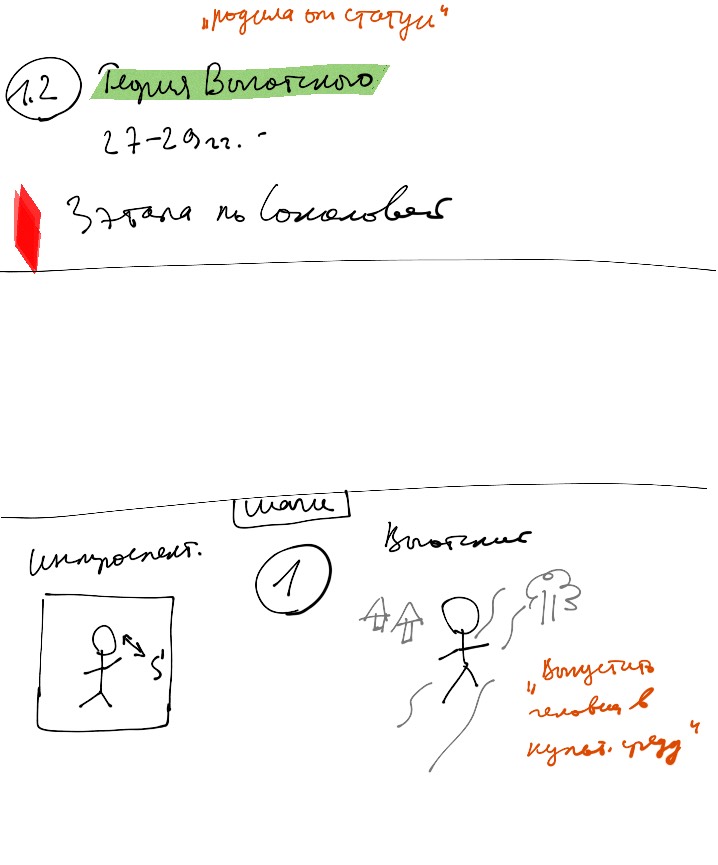 „родила от статуи“
1.2 Теория Выготского
27–29 гг. -
3 этапа по Соколовой
шаги
интроспект.
1
Выготский
S
„Выпустить
человека в
культ. среду“